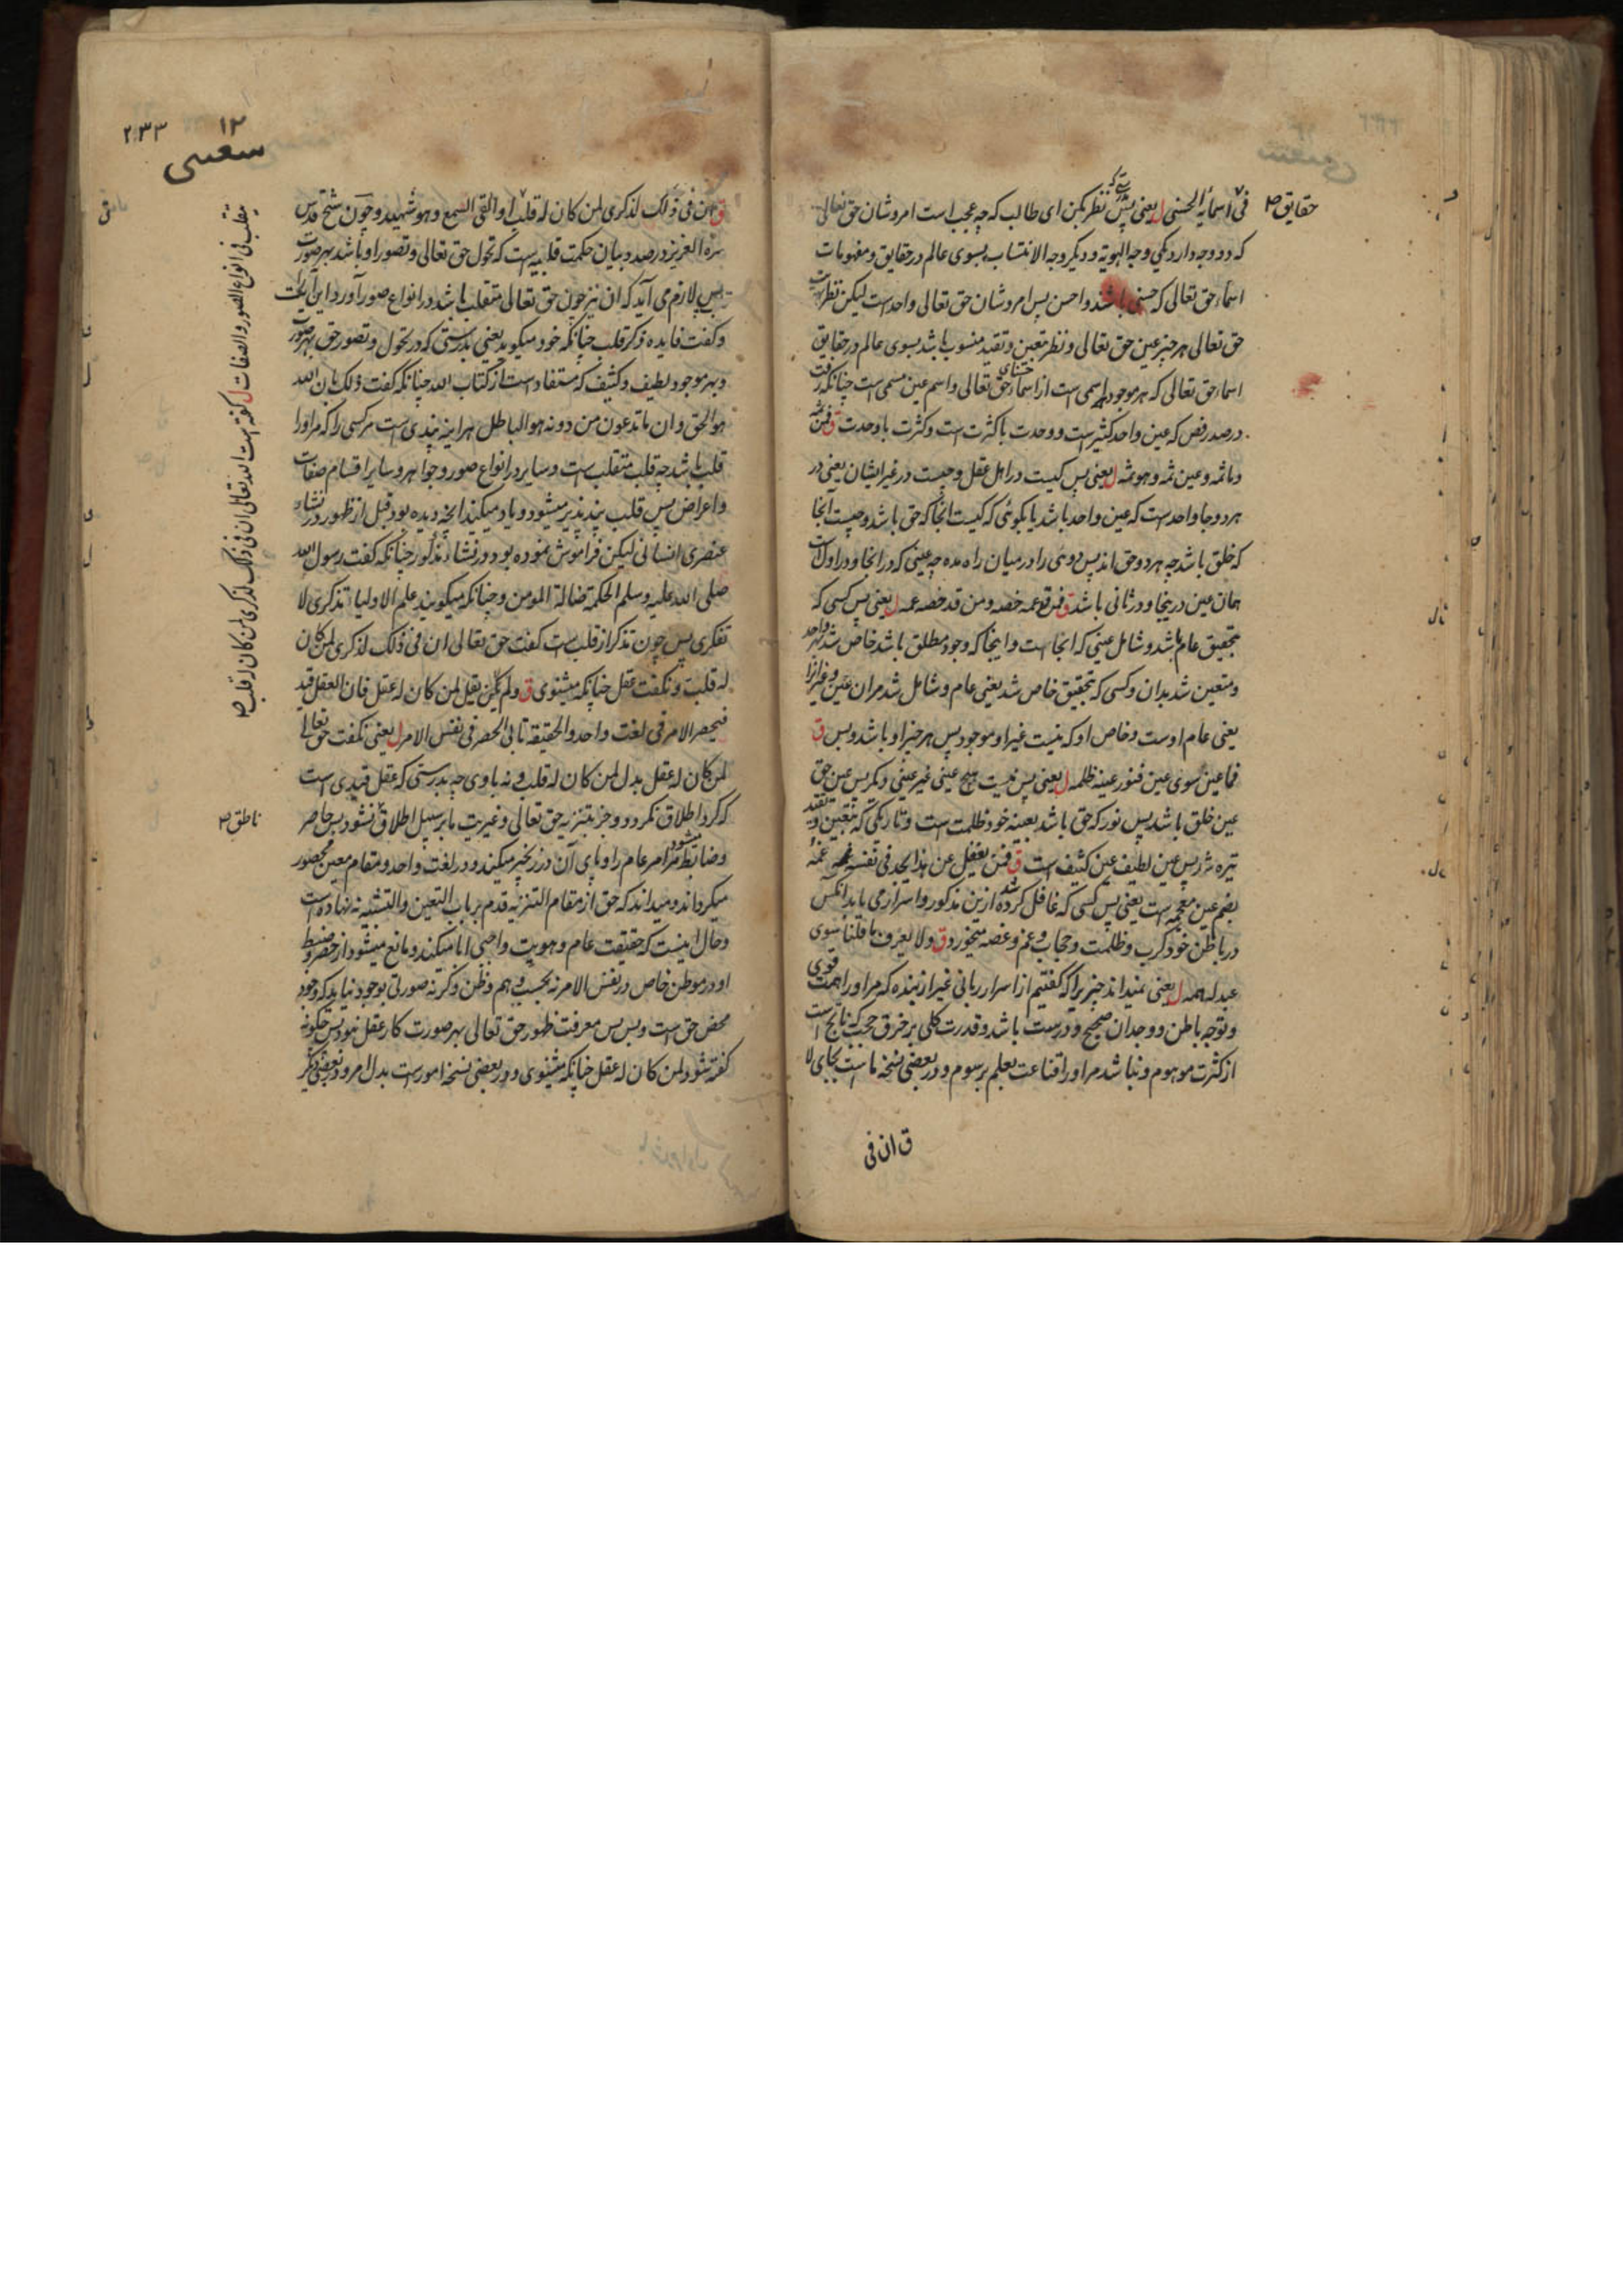 حقایق
فی اسمائه الحسنی ل یعنی پس نظر بکن ای طالب که چه عجب است امر و شان حق تعالی
که دو وجه دارد یکی وجه الهویة و دیگر وجه الانتساب بسوی عالم در حقایق و مفهومات
اسماء حق تعالی که حسنی باشند و احسن پس امر و شان حق تعالی واحد است لیکن نظر
حق تعالی هر چیز عین حق تعالی و نظر تعین و تقید منسوب باشد بسوی عالم در حقایق
اسماء حق تعالی که هر موجود اسمی است از اسماء حق تعالی و اسم عین مسمی است چنانکه
در صدر فص که عین واحد کثیر است و وحدت با کثرت است و کثرت با وحدت ق فمن ثمه
و ما ثمه و عین ثمه و هو ثمه ل یعنی پس کیست در اهل عقل و چیست در غیر ایشان یعنی در
هر دو جا واحد است که عین واحد باشد یا بکوئی که کیست انجا که حق باشد و چیست انجا
که خلق باشد چه هر دو حق اند پس دوئی را در میان راه مده چه عینی که در انجا و در اول است
همان عین در ینجا و در ثانی باشد ق فمن قد عمه خصه و من قد خصه عمه ل یعنی پس کسی که
بتحقیق عام باشد و شامل عینی که انجا است و اینجا که وجود مطلق باشد خاص شد
و متعین شد بدان و کسی که بتحقیق خاص شد یعنی عام و شامل شد مران عین
یعنی عام اوست و خاص او که نیست غیر او موجود پس هر چیز او باشد و بس ق
فما عین سوی عین فنور عینه ظلمه ل یعنی پس نیست هیچ عینی غیر عینی دیگر پس عین حق
عین خلق باشد پس نور که حق باشد بعینه خود ظلمت است و تاریکی که بتعین و تقید
تیره شد پس عین لطیف عین کثیف است ق فمن یغفل عن هذا یجد فی نفسه غمه
بضم عین معجمه است یعنی پس کسی که غافل کرده شد ازین مذکور و اسرار می یابد انکس
در باطن خود کرب و ظلمت و حجاب و غم و غصه میخورد ق و لا یعرف ما قلنا سوی
عبد له همه ل یعنی نمیداند چیزی را که گفتیم از اسرار ربانی غیر از بنده که مر او را همت قوی
و توجه باطن و وجدان صحیح و درست باشد و قدرت کلی بر خرق حجب که ناتج است
از کثرت موهوم و نباشد مر او را قناعت بعلم رسوم و در بعضی نسخه ما است بجای لا
ق ان فی
۲۳۳
۱۲
شعیبی
ق ان فی ذلک لذکری لمن کان له قلب او القی السمع و هو شهید و چون شیخ قدس
سره العزیز در صدد بیان حکمت قلبیه است که تحول حق تعالی و تصور او باشد بهر صورت
پس لازم می آید که ان نیز چون حق تعالی متقلب باشد در انواع صور آورد این آیت
و گفت فایده ذکر قلب چنانکه خود میکوید یعنی بدرستی که در تحول و تصور حق بهر صورت
و بهر موجود لطیف و کثیف که مستفاد است از کتاب الله چنانکه گفت ذلک بان الله
هو الحق و ان ما تدعون من دونه هو الباطل هراینه پندی است مر کسی را که مر او را
قلب باشد چه قلب متقلب است و سایر در انواع صور و جواهر و سایر اقسام صفات
و اعراض پس قلب پند پذیر میشود و یاد میکند انچه دیده بود قبل از ظهور در نشاء
عنصری انسانی لیکن فراموش نموده بود در نشاء مذکور چنانکه گفت رسول الله
صلی الله علیه و سلم الحکمة ضالة المومن و چنانکه میکویند علم الاولیاء تذکری لا
تفکری پس چون تذکر از قلب است گفت حق تعالی ان فی ذلک لذکری لمن کان
له قلب و نگفت عقل چنانکه میشنوی ق و لم یقل لمن کان له عقل فان العقل قید
فیحصر الامر فی نعت واحد و الحقیقة تابی الحصر فی نفس الامر ل یعنی نگفت حق تعالی
لمن کان له عقل بدل لمن کان له قلب و نه باوی چه بدرستی که عقل قیدی است
که گرد اطلاق نگردد و جز بتنزیه حق تعالی و غیریت بابر سبیل اطلاق نشود پس حاصر
و ضابط میشود مر امر عام را و پای آن در زنجیر میکند و در نعت واحد و مقام معین محصور
میکرداند و میداند که حق از مقام التنزیه قدم بر باب التعین و التشبیه نه نهاده است
و حال اینست که حقیقت عام و هویت واجبی ابا میکند و مانع میشود از حصر و ضبط
او در موطن خاص در نفس الامر نه بحسب وهم و ظن و گرنه صورتی بوجود نیاید که وجود
محض حق است و بس پس معرفت ظهور حق تعالی بهر صورت کار عقل نبود پس چگونه
گفته شود لمن کان له عقل چنانکه میشنوی و در بعضی نسخه امور است بدل امر و در بعضی دیگر
یتقلب فی انواع الصور و الصفات ل گفته است الله تعالی ان فی ذلک لذکری لمن کان له قلب
ناطق